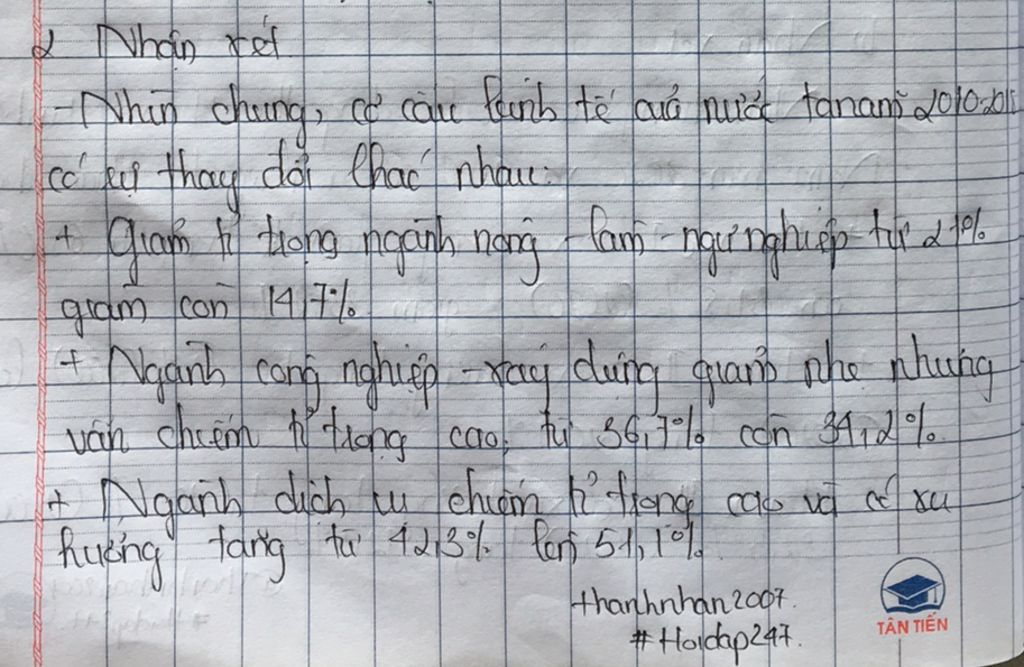 2 Nhận xét
- Nhìn chung, cơ cấu kinh tế cuả nước ta năm 2010-2015
có sự thay đổi khác nhau:
+ Giảm tỉ trọng ngành nông - lâm - ngư nghiệp từ 21%
giảm còn 14,7%
+ Ngành công nghiệp - xây dựng giảm nhẹ nhưng
vẫn chiếm tỉ trọng cao, từ 36,7% còn 34,2%.
+ Ngành dịch vụ chiếm tỉ trọng cao và có xu
hướng tăng từ 42,3% lên 51,1%.
thanhnhan2007.
#Hoidap247.
TÂN TIẾN